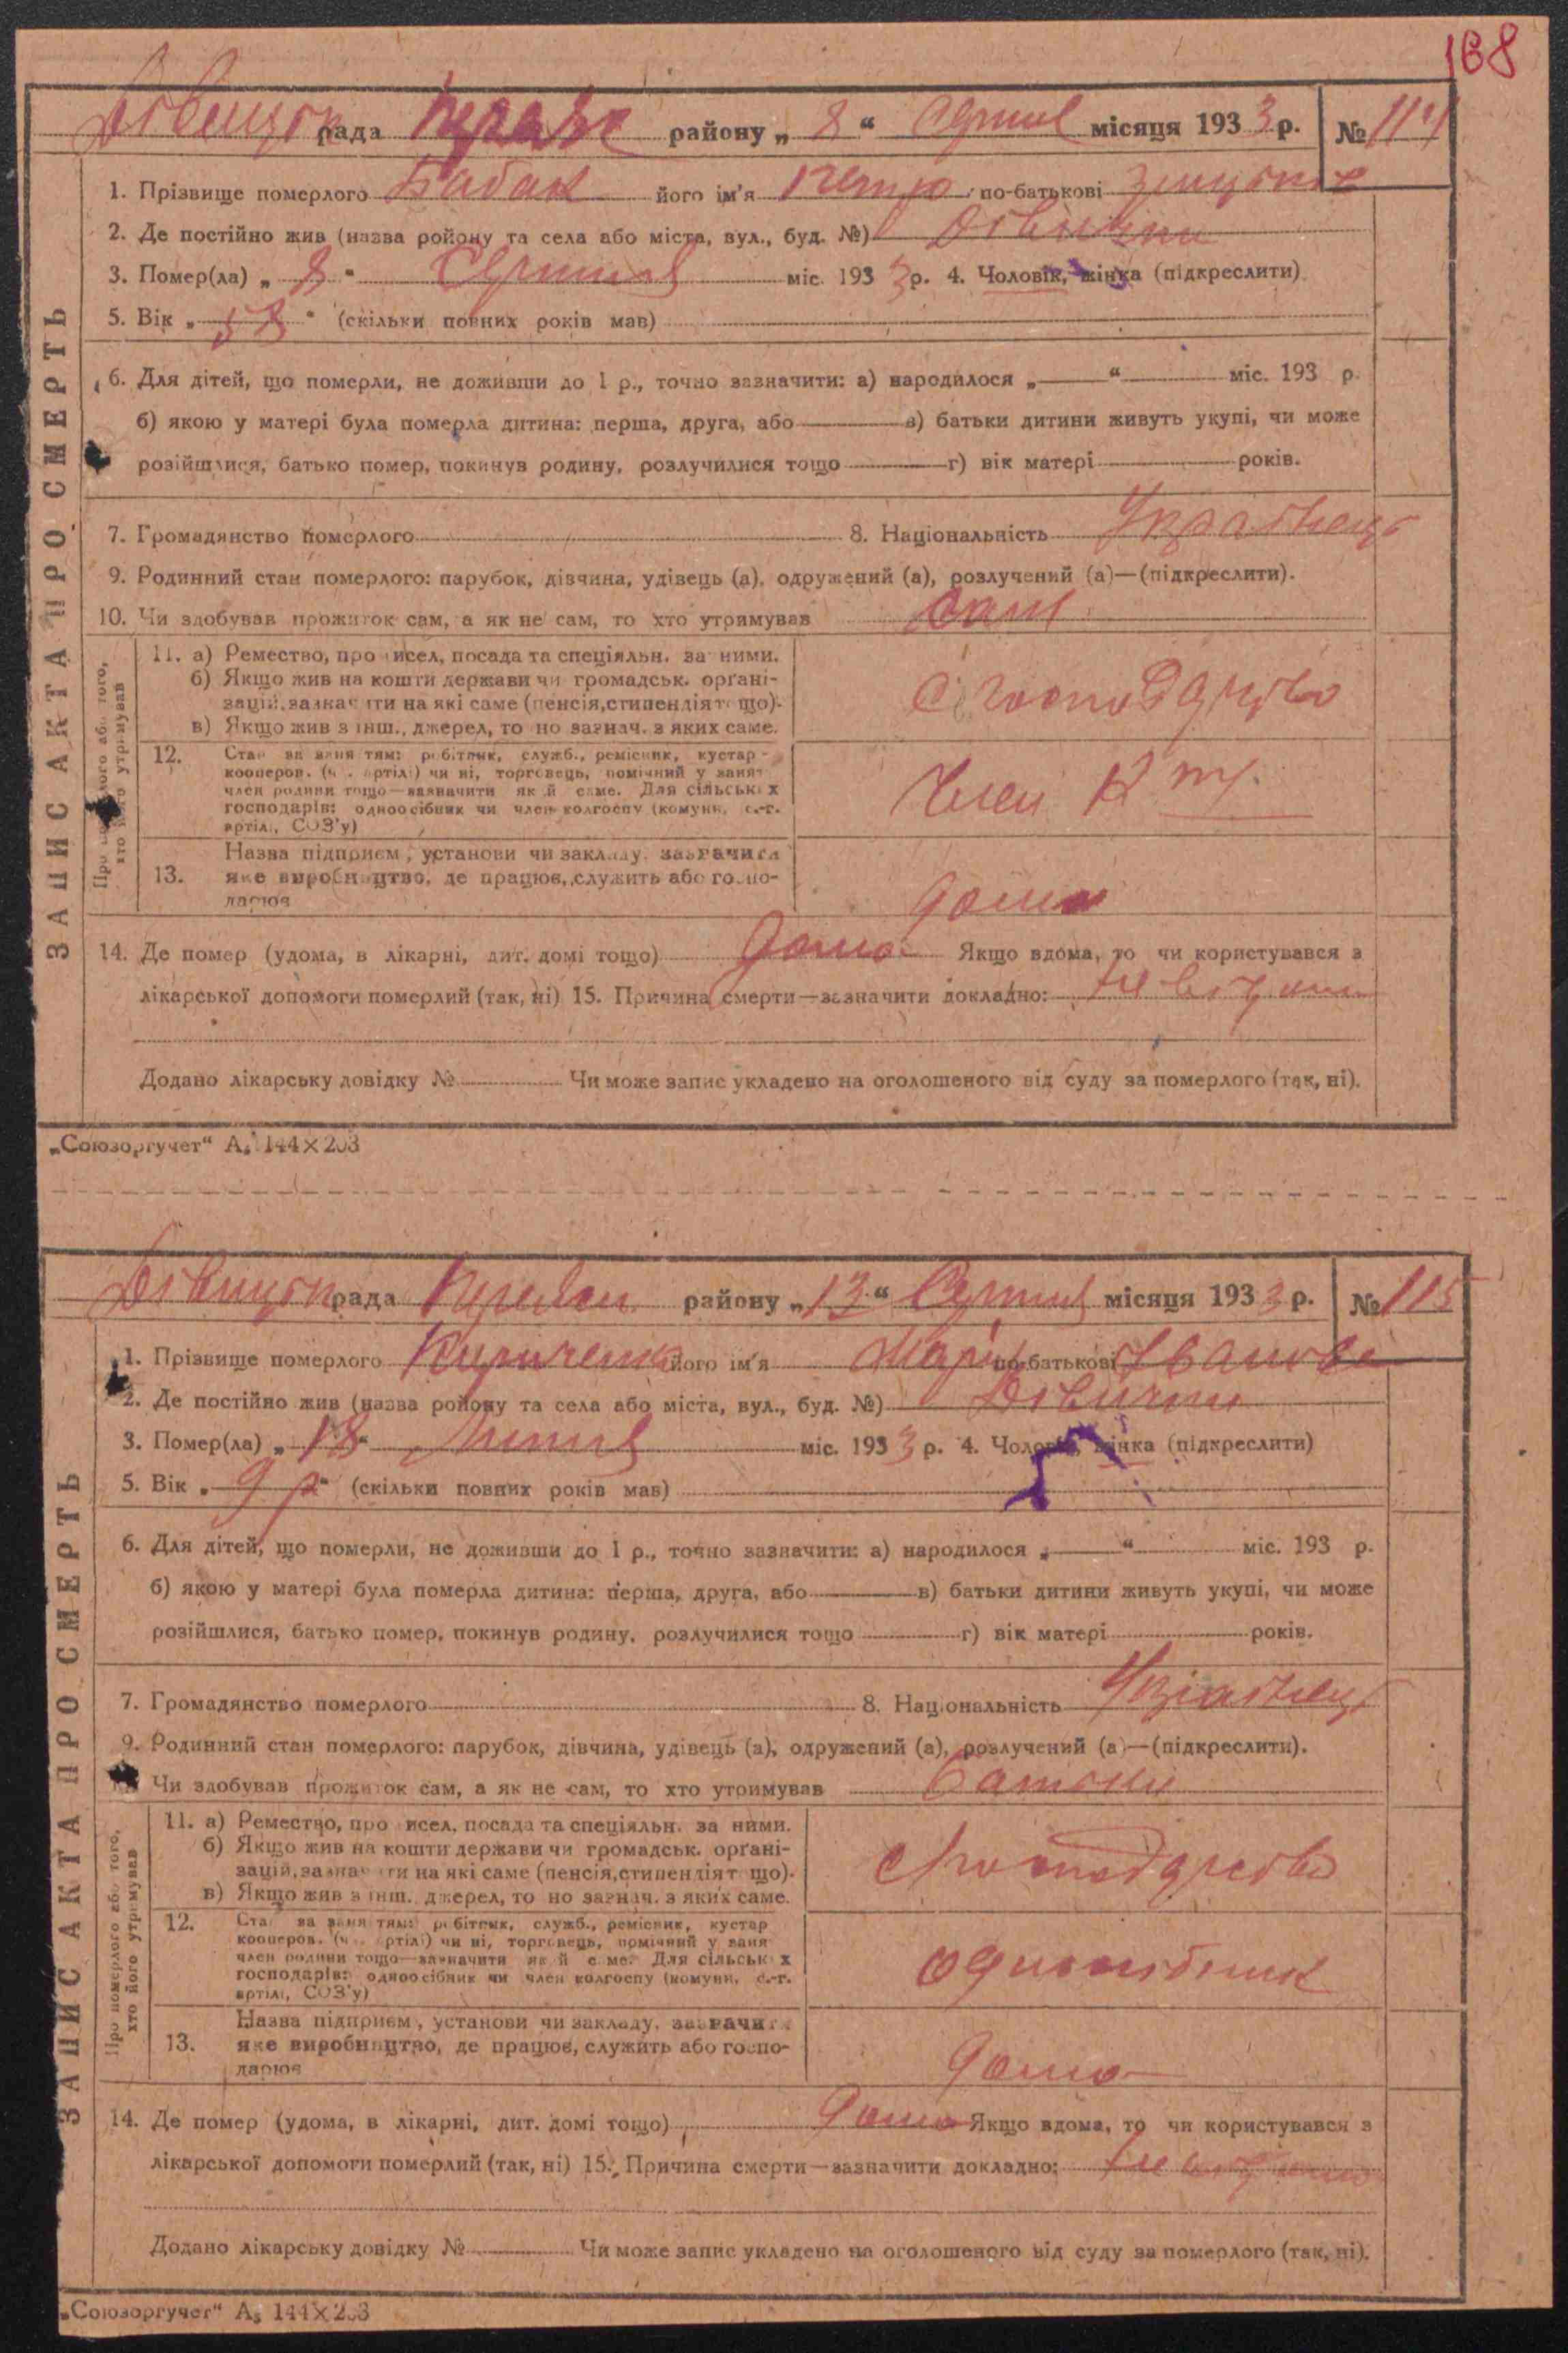 168
рада району „ 8 “ Серпня місяця 1933 р. № 114
1. Прізвище померлого Бабак його ім'я Петро по-батькові
2. Де постійно жив (назва ройону та села або міста, вул., буд. №) Дівички
3. Помер(ла) „ 8 “ Серпня міс. 193 3 р. 4. Чоловік, жінка (підкреслити)
5. Вік „ 58 “ (скільки повних років мав)
6. Для дітей, що померли, не доживши до 1 р., точно зазначити: а) народилося „ “ міс. 193 р.
б) якою у матері була померла дитина: перша, друга, або в) батьки дитини живуть укупі, чи може
розійшлися, батько помер, покинув родину, розлучилися тощо г) вік матері років.
7. Громадянство померлого 8. Національність Українець
9. Родинний стан померлого: парубок, дівчина, удівець (а), одружений (а), розлучений (а)—(підкреслити).
10. Чи здобував прожиток сам, а як не сам, то хто утримував сам
11. а) Ремество, про исел, посада та спеціяльн. за ними.
б) Якщо жив на кошти держави чи громадськ. орґані-
зацій, зазнач ити на які саме (пенсія, стипендія т що).
в) Якщо жив з інш., джерел, то но зазнач. з яких саме.
С господарство
12. Стан за заня тям: робітник, служб., ремісник, кустар -
кооперов. (ч. артілі) чи ні, торговець, помічний у занят
член родини тощо—зазначити як й саме. Для сільськ х
господарів: одноосібник чи член колгоспу (комуни, с.-г.
артілі, СОЗ'у)
Член К
Назва підприєм , установи чи закладу, зазначити
13. яке виробництво, де працює, служить або госпо-
дарює
дома
14. Де помер (удома, в лікарні, дит. домі тощо) дома Якщо вдома, то чи користувався з
лікарської допомоги померлий (так, ні) 15. Причина смерти—зазначити докладно: не відомо
Додано лікарську довідку № Чи може запис укладено на оголошеного від суду за померлого (так, ні).
ЗАПИС АКТА ПРО СМЕРТЬ
Про померлого або того,
хто його утримував
„Союзоргучет“ А₅ 144×203
рада району „ 13 “ Серпня місяця 193 3 р. № 115
1. Прізвище померлого Кириченко його ім'я Марія по-батькові Іванова
2. Де постійно жив (назва ройону та села або міста, вул., буд. №) Дівички
3. Помер(ла) „ 18 “ Липня міс. 193 3 р. 4. Чоловік, жінка (підкреслити)
5. Вік „ 9 р “ (скільки повних років мав)
6. Для дітей, що померли, не доживши до 1 р., точно зазначити: а) народилося „ “ міс. 193 р.
б) якою у матері була померла дитина: перша, друга, або в) батьки дитини живуть укупі, чи може
розійшлися, батько помер, покинув родину, розлучилися тощо г) вік матері років.
7. Громадянство померлого 8. Національність Українець
9. Родинний стан померлого: парубок, дівчина, удівець (а), одружений (а), розлучений (а)—(підкреслити).
Чи здобував прожиток сам, а як не сам, то хто утримував батьки
11. а) Ремество, про исел, посада та спеціяльн. за ними.
б) Якщо жив на кошти держави чи громадськ. орґані-
зацій, зазнач ити на які саме (пенсія, стипендія т що).
в) Якщо жив з інш., джерел, то но зазнач. з яких саме.
С господарство
12. Стан за заня тям: робітник, служб., ремісник, кустар
кооперов. (ч. артілі) чи ні, торговець, помічний у заня
член родини тощо—зазначити як й саме. Для сільськ х
господарів: одноосібник чи член колгоспу (комуни, с.-г.
артілі, СОЗ'у)
одноосібник
Назва підприєм , установи чи закладу, зазначити
13. яке виробництво, де працює, служить або госпо-
дарює
дома
14. Де помер (удома, в лікарні, дит. домі тощо) дома Якщо вдома, то чи користувався з
лікарської допомоги померлий (так, ні) 15. Причина смерти—зазначити докладно: не відомо
Додано лікарську довідку № Чи може запис укладено на оголошеного від суду за померлого (так, ні).
ЗАПИС АКТА ПРО СМЕРТЬ
Про померлого або того,
хто його утримував
„Союзоргучет“ А₅ 144×203